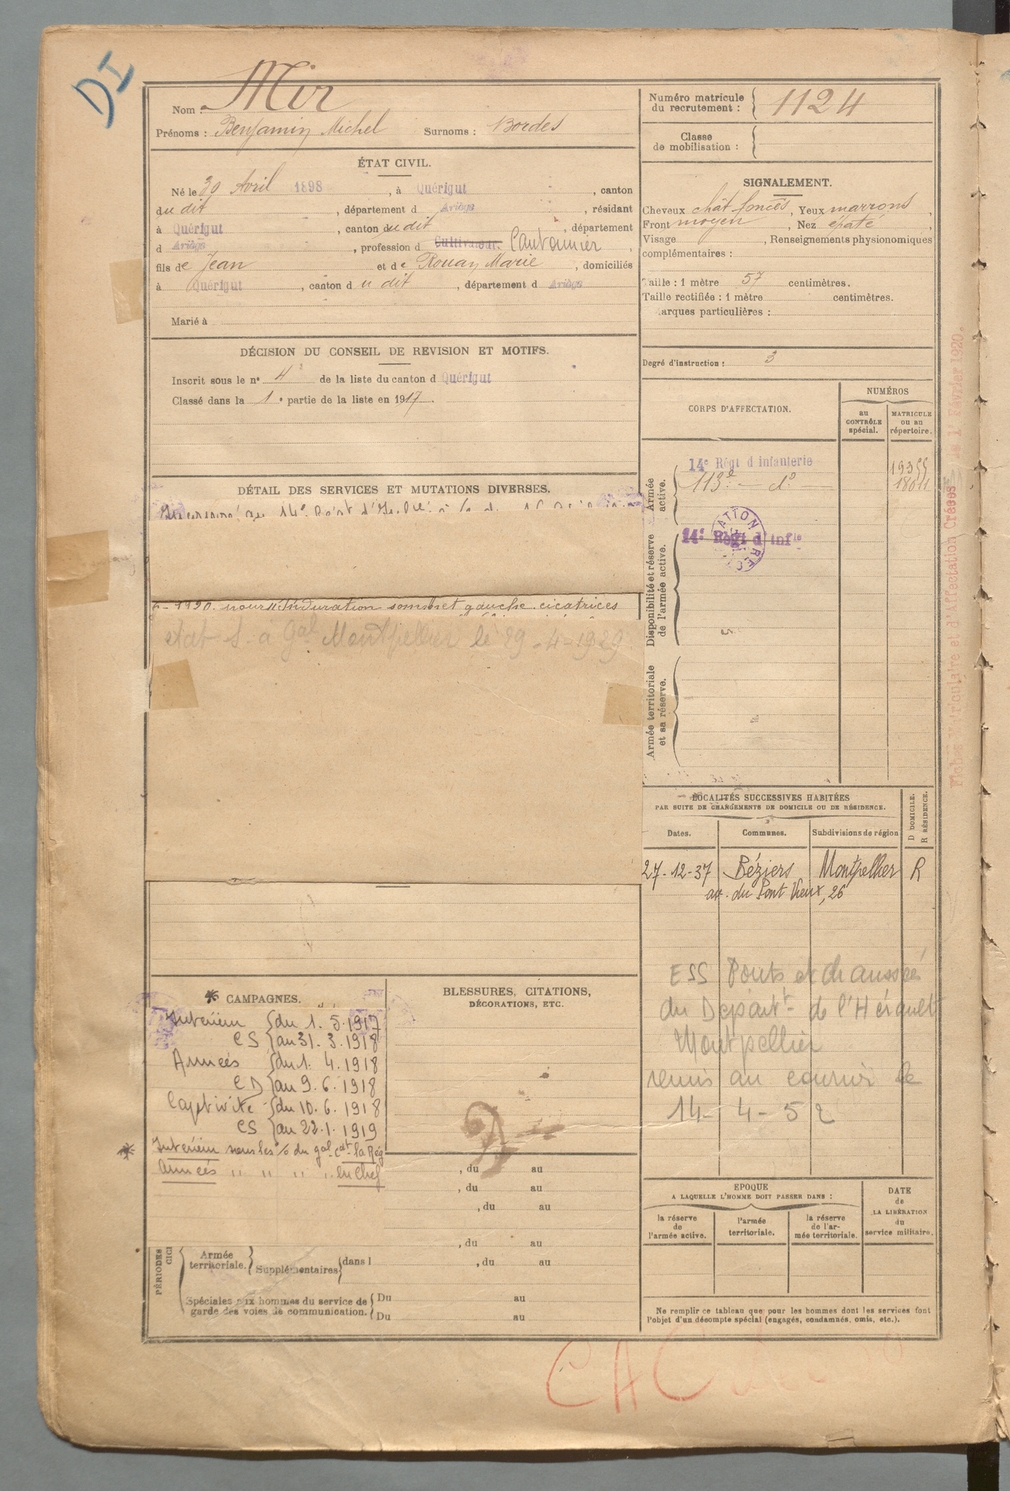 DI
Nom : Mir
Prénoms : Benjamin Michel Surnoms : Bordes
Numéro matricule
du recrutement : 1124
Classe
de mobilisation :
ÉTAT CIVIL.
Né le 30 Avril 1898, à Quérigut, canton
du dit, département d Ariège, résidant
à Quérigut, canton du dit, département
d Ariège, profession d Cultivateur. Cantonnier,
fils de Jean et de Rouan Marie, domiciliés
à Quérigut, canton d u dit, département d Ariège
Marié à
SIGNALEMENT.
Cheveux chât foncés, Yeux marrons,
Front moyen, Nez épaté,
Visage, Renseignements physionomiques
complémentaires :
Taille : 1 mètre 57 centimètres.
Taille rectifiée : 1 mètre centimètres.
arques particulières :
Degré d'instruction : 3
DÉCISION DU CONSEIL DE REVISION ET MOTIFS.
Inscrit sous le n° 4 de la liste du canton d Quérigut
Classé dans la 1e partie de la liste en 1917.
DÉTAIL DES SERVICES ET MUTATIONS DIVERSES.
au 14e Régt d'Inf
1920. pour induration sommet gauche cicatrices
état S. à Gal Montpellier le 29-4-1929
CORPS D'AFFECTATION.
NUMÉROS
au
CONTRÔLE
spécial.
MATRICULE
OU AU
répertoire.
Armée
active.
14e Régt d infanterie
113e - do -
19355
Disponibilité et réserve
de l'armée active.
14e Régt d infie
Armée territoriale
et sa réserve.
Février 1920.
LOCALITÉS SUCCESSIVES HABITÉES
PAR SUITE DE CHANGEMENTS DE DOMICILE OU DE RÉSIDENCE.
Dates. Communes. Subdivisions de région
D DOMICILE.
R RÉSIDENCE.
27-12-37 Béziers Montpellier R
av. du Pont Vieux, 26
ESS Ponts et chaussée
du Départt de l'Hérault
Montpellier
remis au courrier le
14-4-52
CAMPAGNES.
Intérieur du 1.5.1917
CS au 31.3.1918
Armées du 1.4.1918
CD au 9.6.1918
Captivité du 10.6.1918
CS au 22.1.1919
Intérieur
Armées " " " " en Chef
BLESSURES, CITATIONS,
DÉCORATIONS, ETC.
, du au
, du au
, du au
, du au
, du au
PÉRIODES
Armée
territoriale. Supplémentaires dans l
Spéciales aux hommes du service de
garde des voies de communication.
Du au
Du au
EPOQUE
A LAQUELLE L'HOMME DOIT PASSER DANS :
la réserve
de
l'armée active.
l'armée
territoriale.
la réserve
de l'ar-
mée territoriale.
DATE
de
LA LIBÉRATION
du
service militaire.
Ne remplir ce tableau que pour les hommes dont les services font
l'objet d'un décompte spécial (engagés, condamnés, omis, etc.).